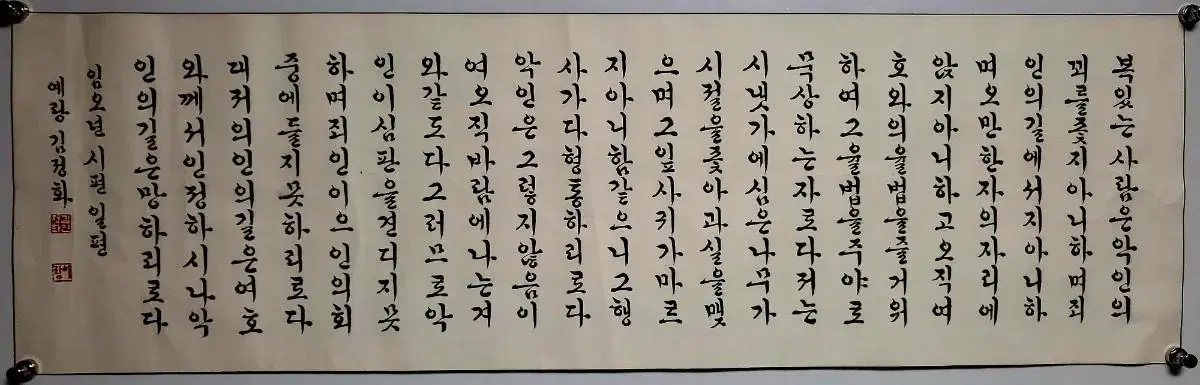 복있는사람은악인의
꾀를좇지아니하며죄
인의길에서지아니하
며오만한자의자리에
앉지아니하고오직여
호와의율법을즐거워
하여그율법을주야로
묵상하는자로다저는
시냇가에심은나무가
시절을좇아과실을맺
으며그잎사귀가마르
지아니함같으니그행
사가다형통하리로다
악인은그렇지않음이
여오직바람에나는겨
와같도다그러므로악
인이심판을견디지못
하며죄인이의인의회
중에들지못하리로다
대저의인의길은여호
와께서인정하시나악
인의길은망하리로다
임오년 시편 일편
예랑 김정화